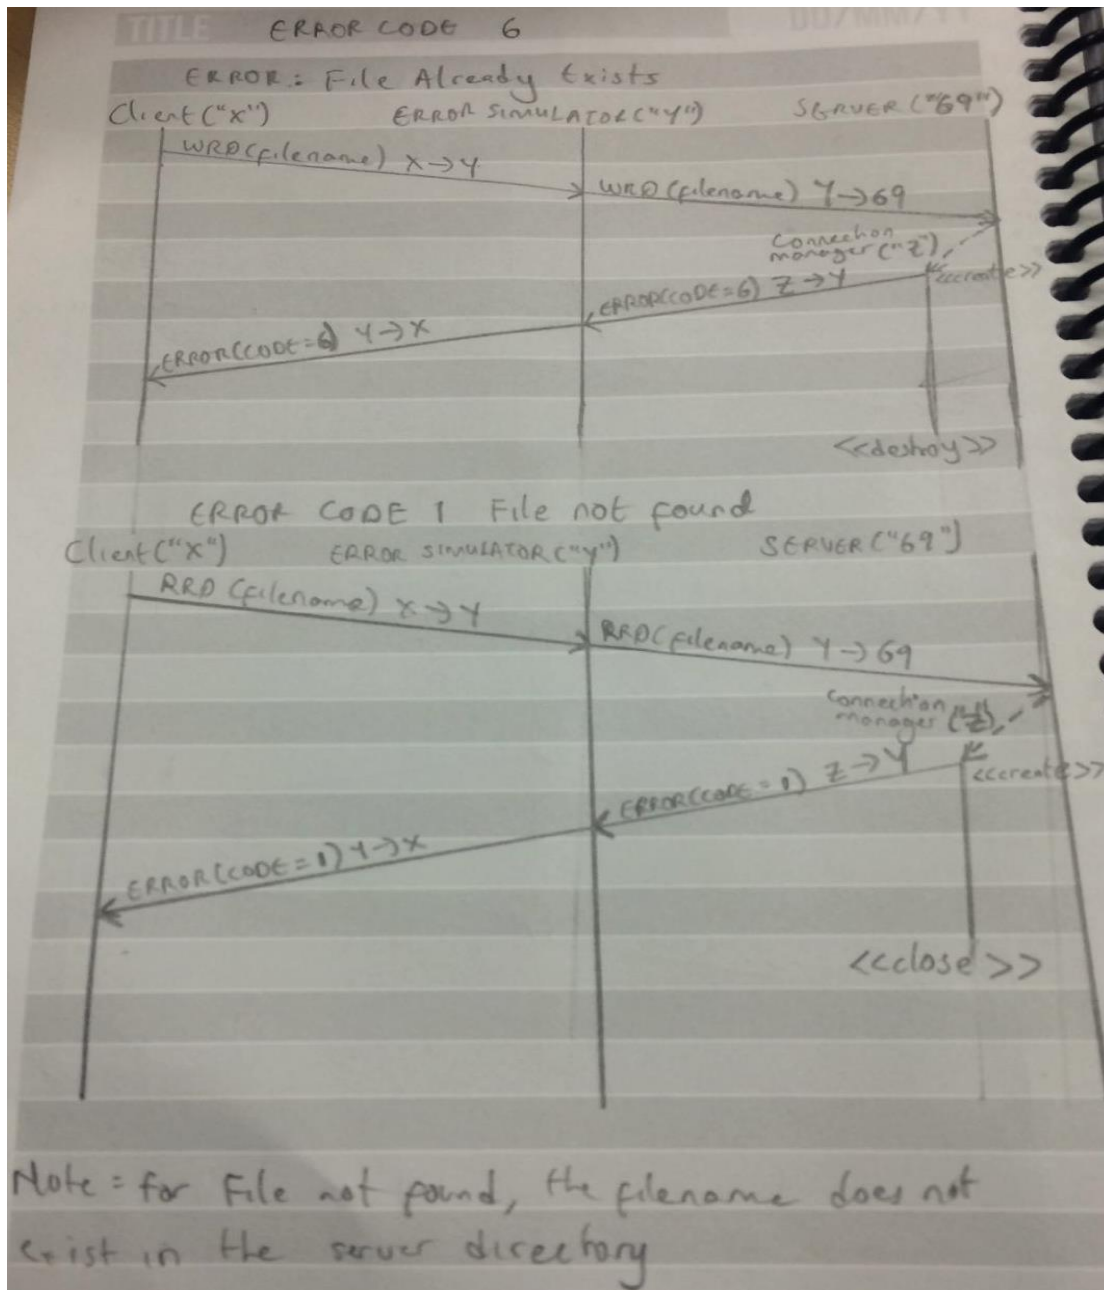 TITLE
DD/MM/YY
ERROR CODE 6
ERROR: File Already Exists
Client ("X") ERROR SIMULATOR ("Y") SERVER ("69")
WRQ (filename) X→Y
WRQ (filename) Y→69
Connection
manager ("Z")
<<create>>
ERROR(CODE=6) Z→Y
ERROR(CODE=6) Y→X
<<destroy>>
ERROR CODE 1 File not found
Client ("X") ERROR SIMULATOR ("Y") SERVER ("69")
RRQ (filename) X→Y
RRQ (filename) Y→69
Connection
manager ("Z")
<<create>>
ERROR(CODE=1) Z→Y
ERROR(CODE=1) Y→X
<<close>>
Note: for File not found, the filename does not
exist in the server directory